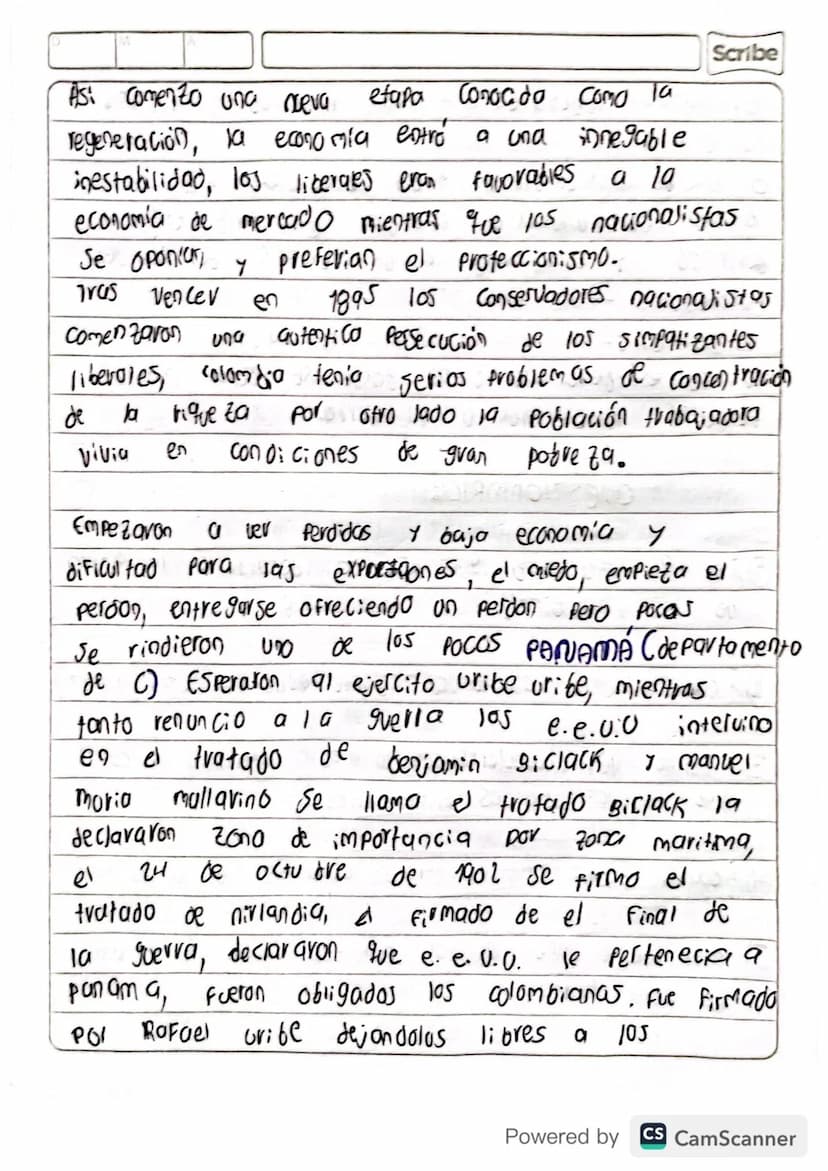 D M A
Scribe
Asi comenzo una nueva etapa conocido como la
regeneración, la economía entró a una innegable
inestabilidad, los liberales eran favorables a la
economía de mercado mientras que los nacionalistas
se oponian, y preferian el proteccionismo.
Tras vencer en 1895 los conservadores nacionalistas
comenzaron una autentica persecución de los simpatizantes
liberales, colombia tenia serios problemas de concentración
de la riqueza por otro lado la población trabajadora
vivia en condiciones de gran pobreza.
Empezaron a ver perdidas y bajo economía y
dificultad para las exportaciones, el miedo, empieza el
perdon, entregarse ofreciendo un perdon pero pocas
se rindieron uno de los pocos PANAMÁ (departamento
de C) Esperaron al ejercito uribe uribe, mientras
tanto renuncio a la guerra los e.e.U.U intervino
en el tratado de benjamin Biclack y manuel
maria mallarino se llamo el tratado Biclack la
declararon zona de importancia por zona maritima,
el 24 de octubre de 1902 se firmo el
tratado de nirlandia, firmado de el final de
la guerra, declararon que e.e.U.U. le pertenecia a
panama, fueron obligados los colombianas. Fue firmado
por Rafael uribe dejandolos libres a los
Powered by CS CamScanner